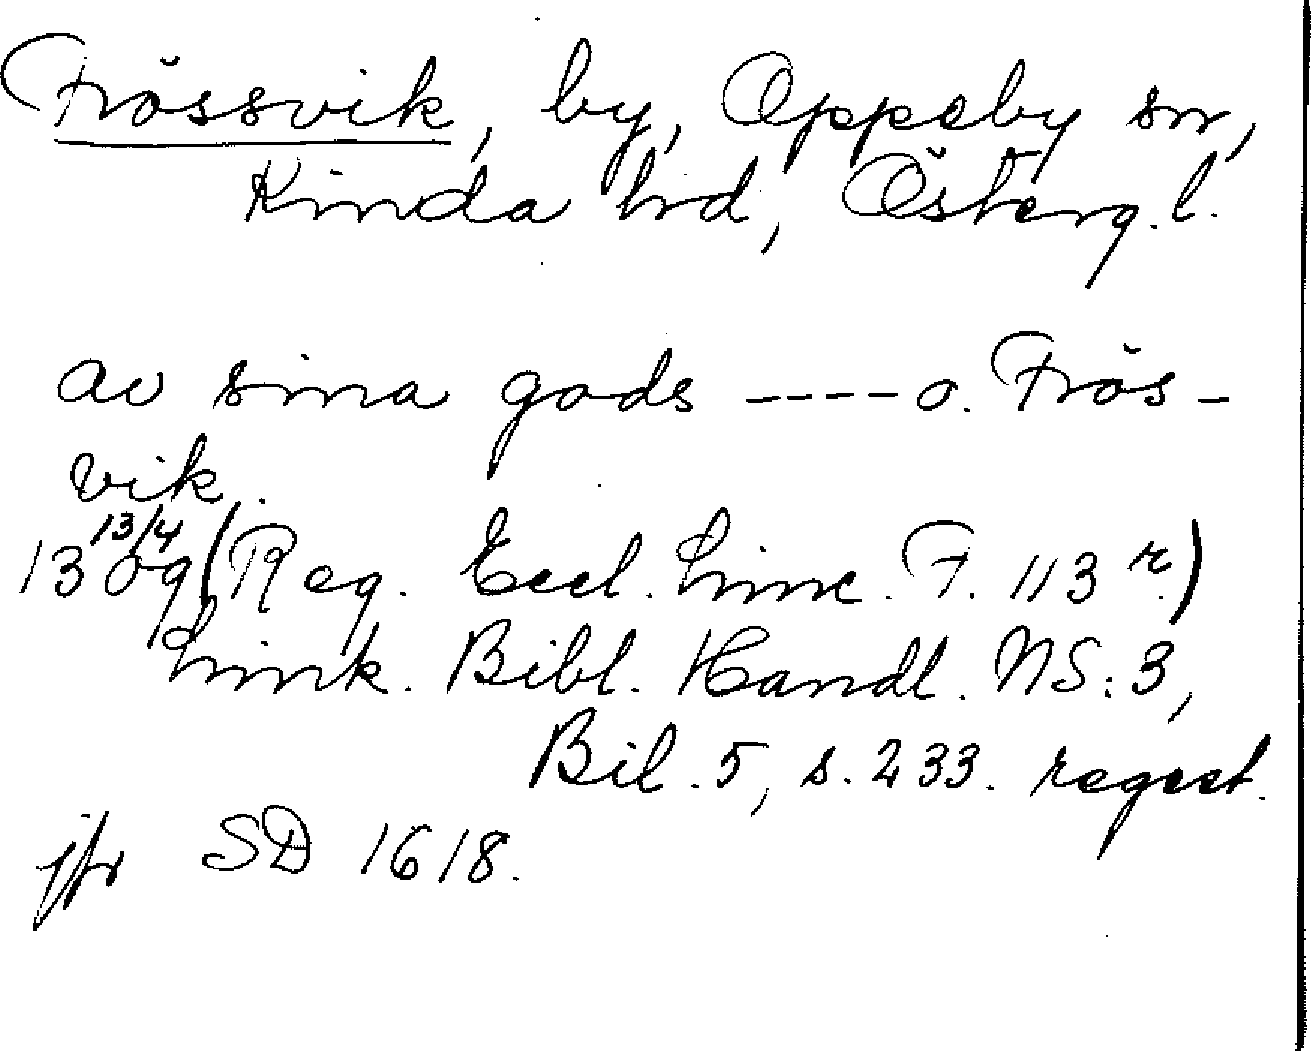 Frössvik, by, Oppeby sn,
Kinda hd, Österg. l.
av sina gods ---- o. Frös-
vik.
13/4
1309 (Reg. Eccl. Linc. F. 113 r.)
Link. Bibl. Handl. NS: 3,
Bil. 5, s. 233. regest.
jfr SD 1618.